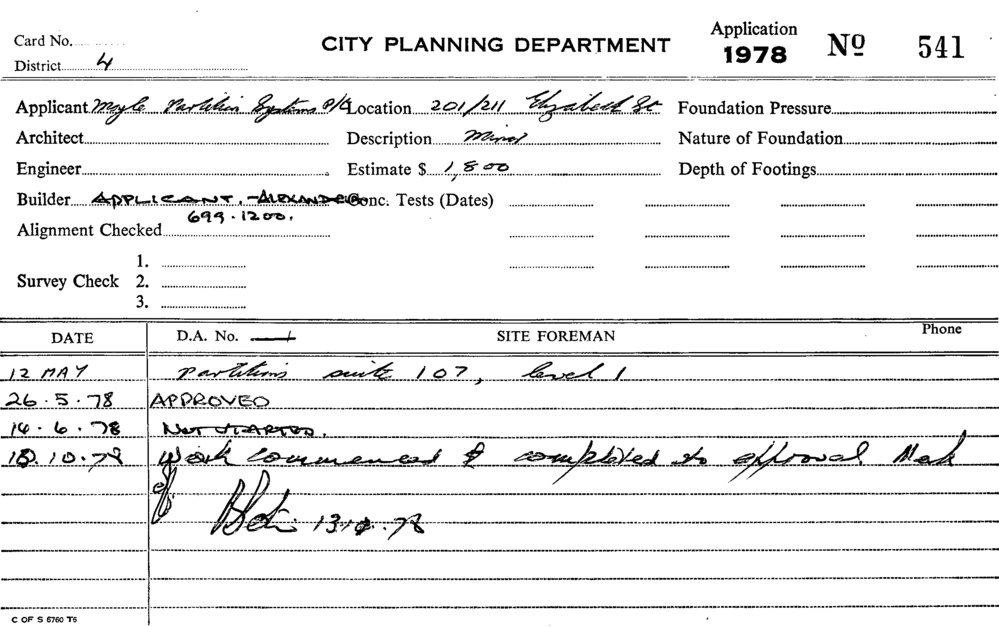 Card No.
CITY PLANNING DEPARTMENT
Application 1978 No 541
District 4
Applicant Moyle Partition Systems P/L Location 201/211 Elizabeth St Foundation Pressure
Architect Description Minor Nature of Foundation
Engineer Estimate $ 1,800 Depth of Footings
Builder APPLICANT. - ALEXANDER Conc. Tests (Dates)
699.1200.
Alignment Checked
1.
Survey Check 2.
3.
DATE D.A. No. SITE FOREMAN Phone
12 MAY partitions suite 107, level 1
26.5.78 APPROVED
14.6.78 NOT STARTED.
13.10.78 Work commenced & completed to approval Mark
off.
13.10.78
C OF S 5760 T5